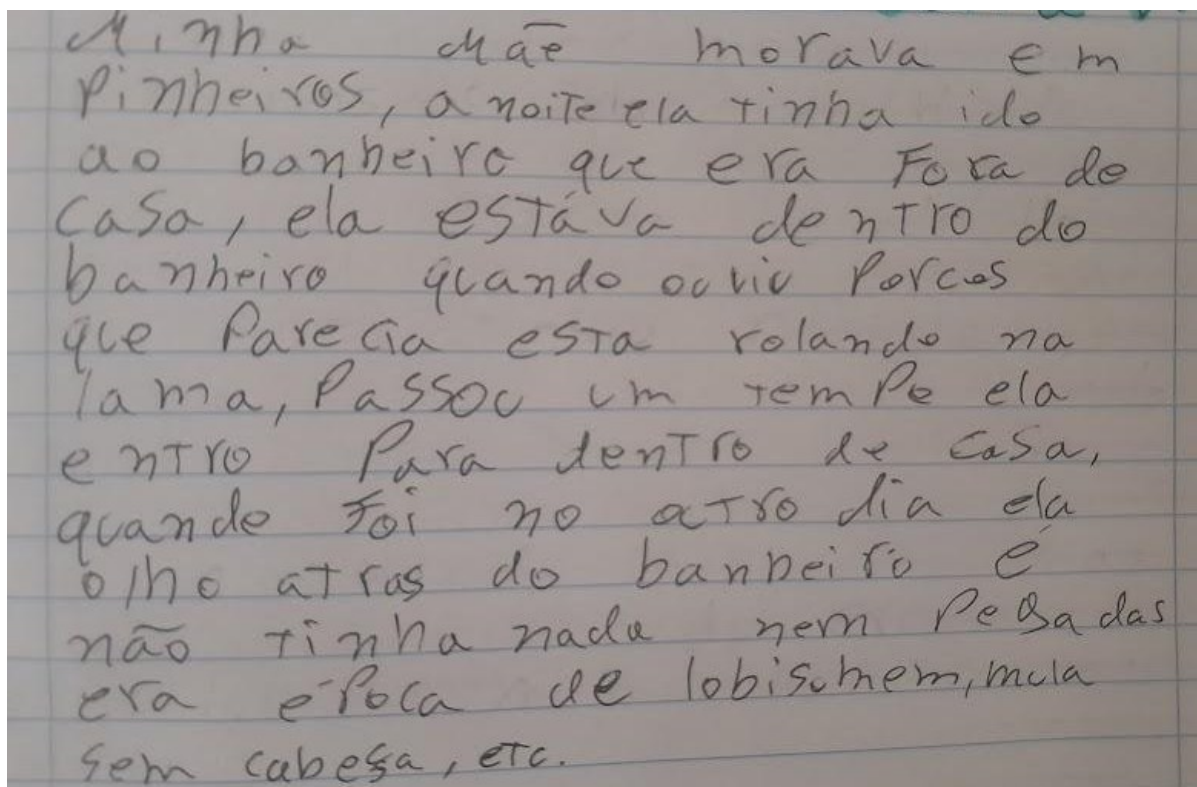 Minha Mãe morava em
Pinheiros, a noite ela tinha ido
ao banheiro que era Fora de
casa, ela estáva dentro do
banheiro quando ouviu Porcos
que Parecia esta rolando na
lama, Passou um tempo ela
entro Para dentro de casa,
quando foi no otro dia ela
olho atras do banheiro é
não tinha nada nem Pegadas
era época de lobisomem, mula
sem cabesa, etc.